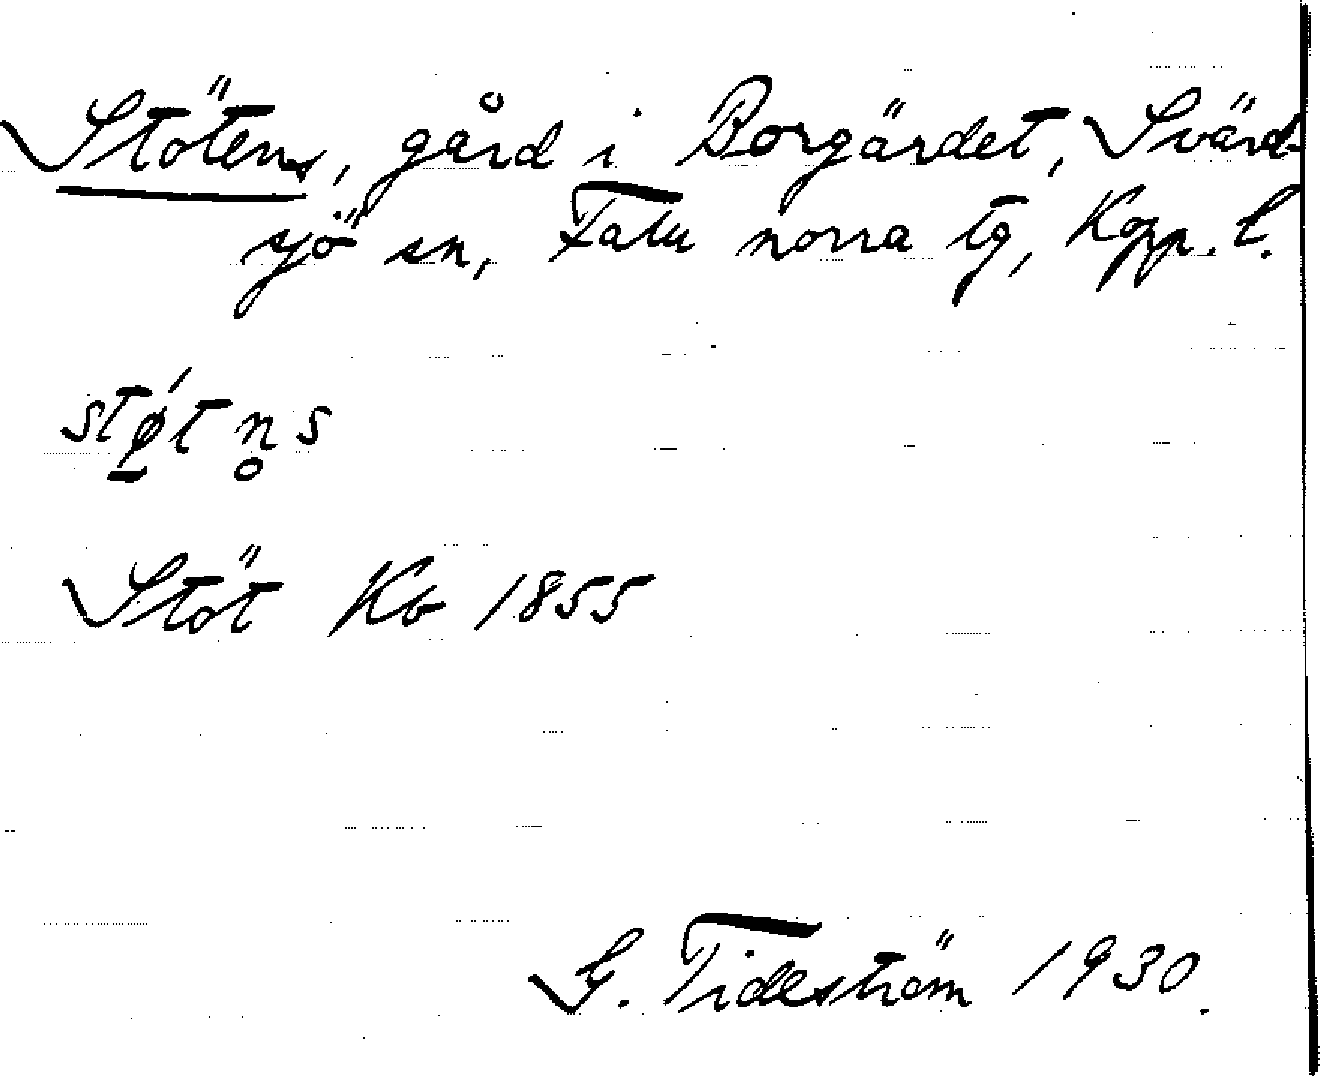 Stötens, gård i Borgärdet, Svärd-
sjö sn, Falu norra tg, Kopp. l.
stǿ̠tn̥s
Stöt Kb 1855
G. Tideström 1930.